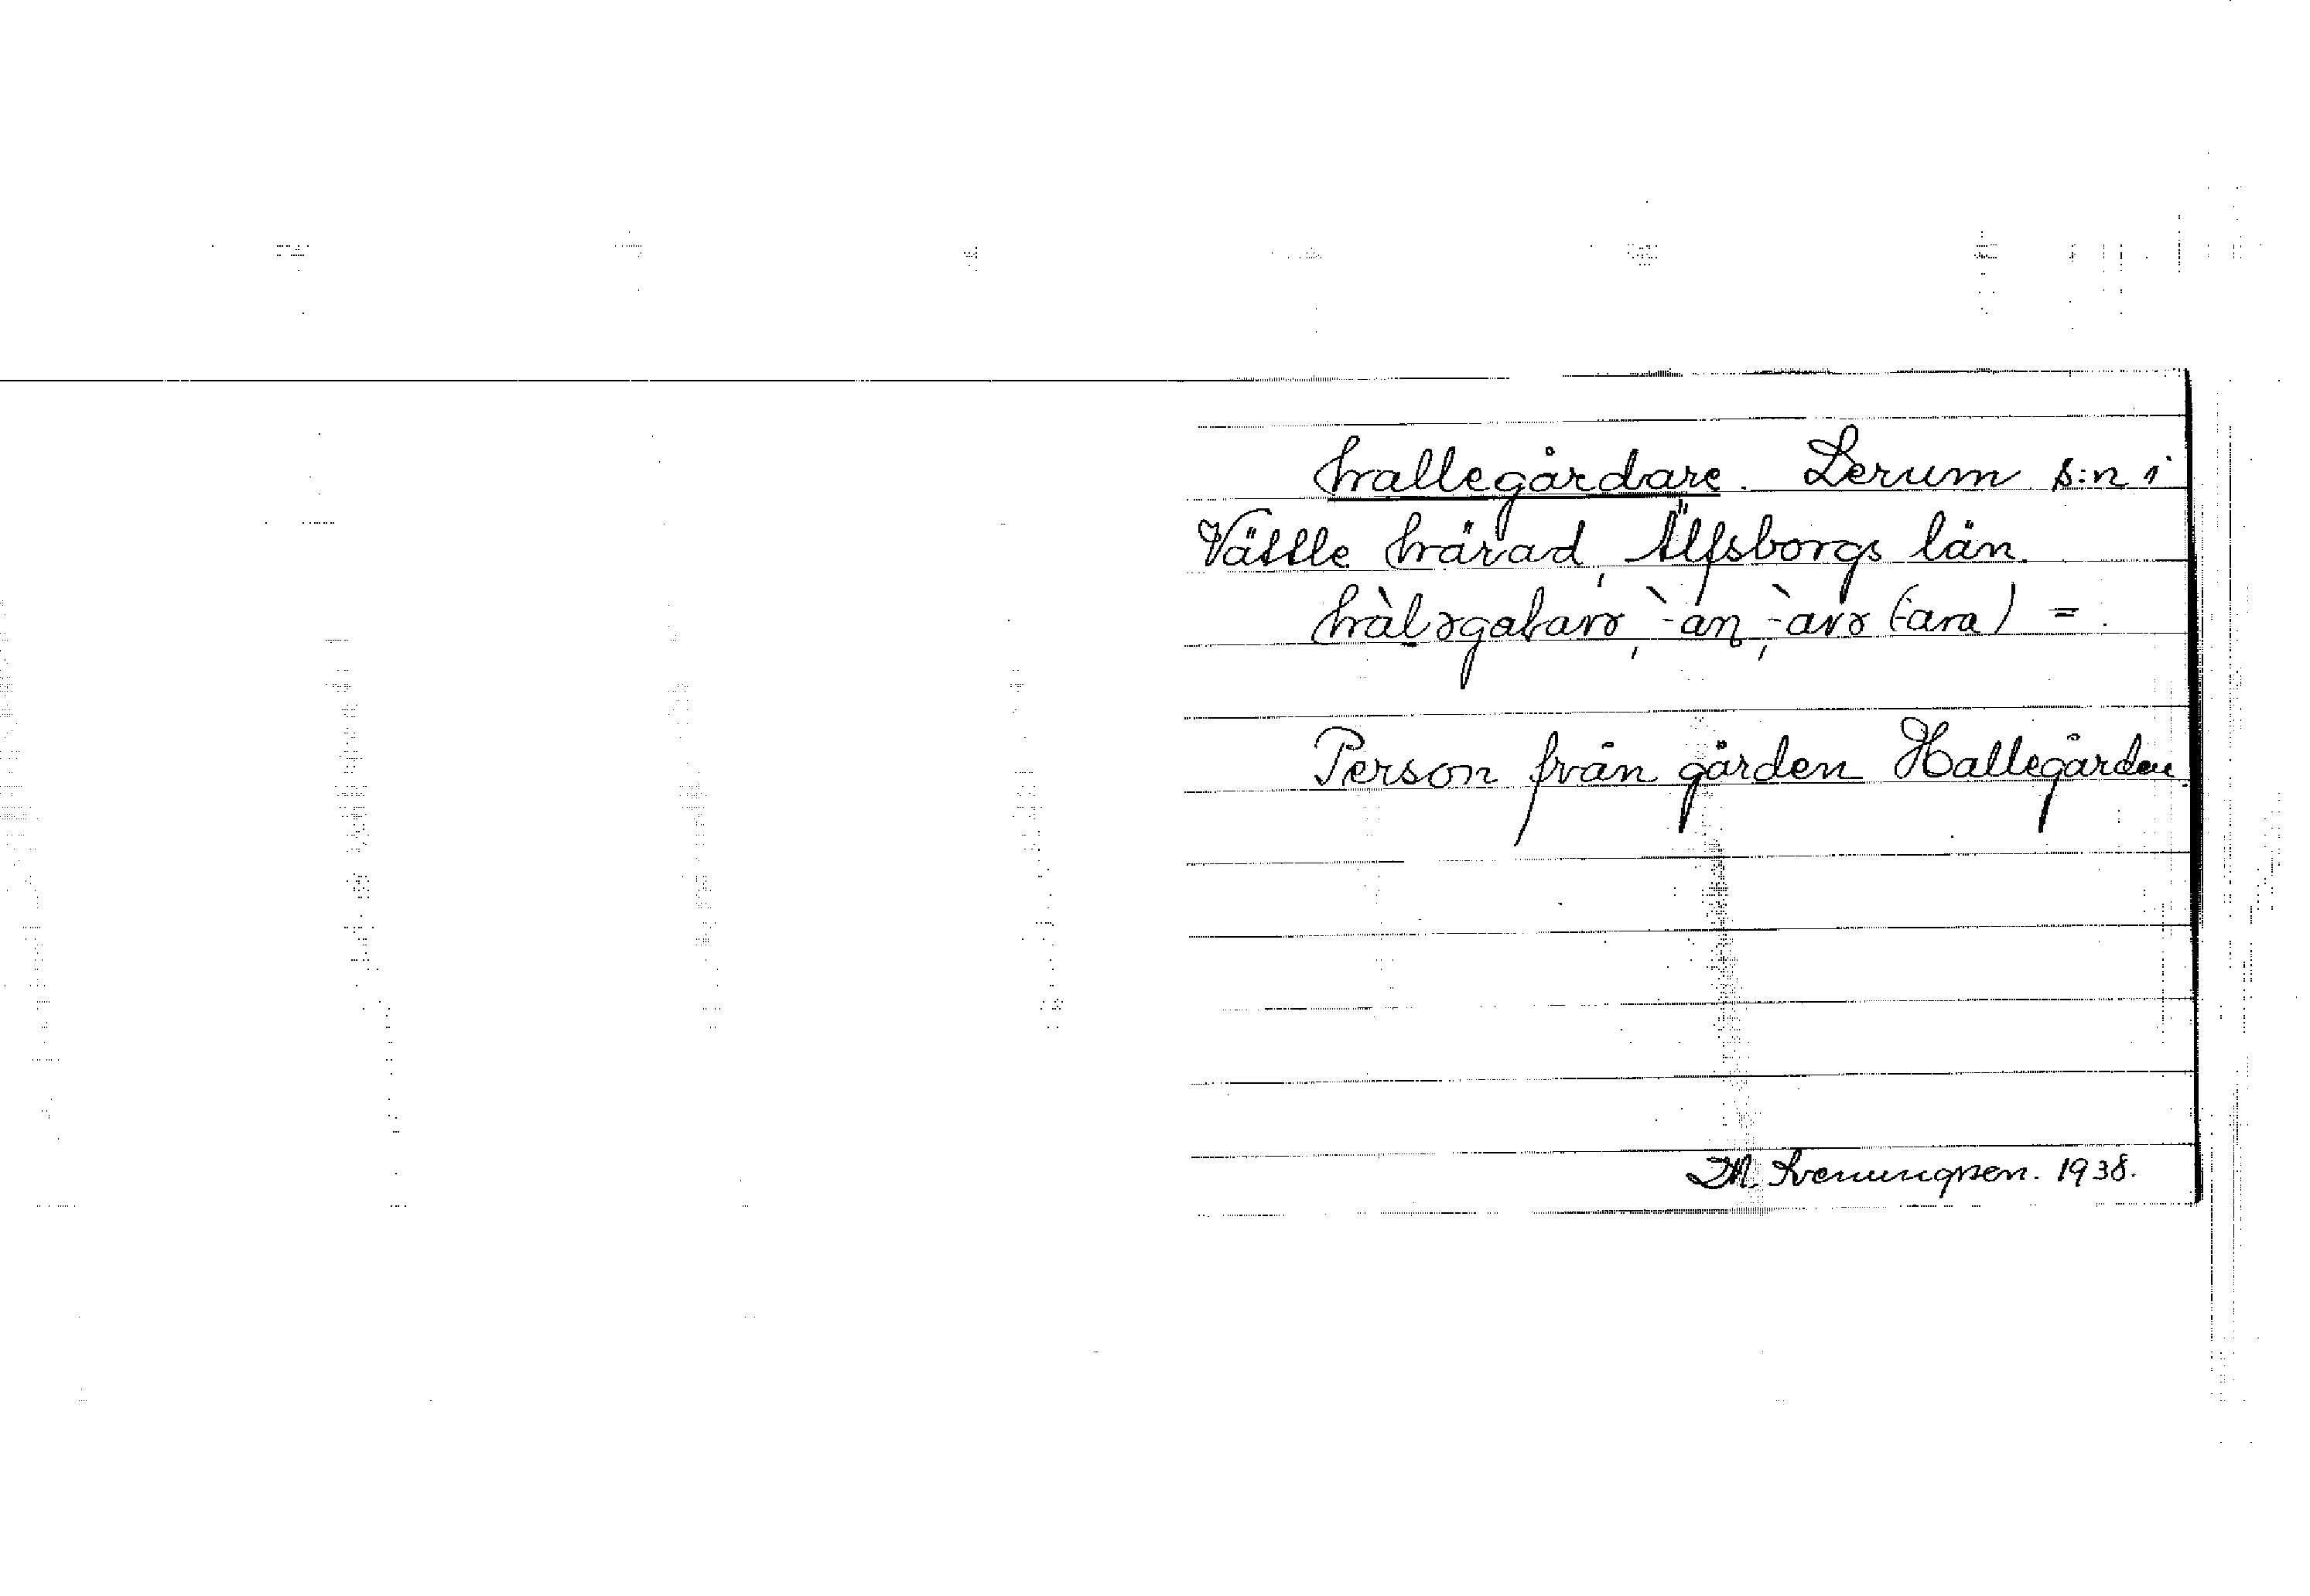 hallegårdare. Lerum s:n i
Vättle härad, Älfsborgs län.
hàləgaƚarə, -̀an, -̀arə (-ara) =
Person från gården Hallegården
1938.